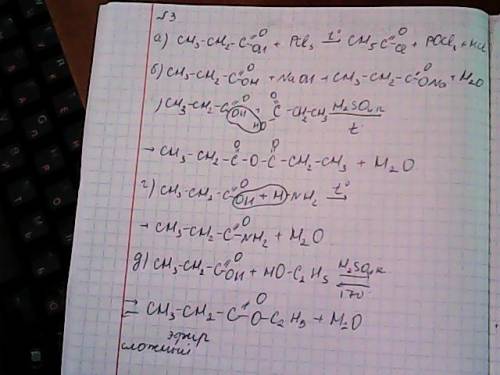 √3
а) CH₃-CH₂-C(=O)OH + PCl₅ →t° CH₃C(=O)Cl + POCl₃ + HCl
б) CH₃-CH₂-C(=O)OH + NaOH → CH₃-CH₂-C(=O)ONa + H₂O
) CH₃-CH₂-C(=O)OH + HO-C(=O)-CH₂-CH₃ H₂SO₄ к t
→ CH₃-CH₂-C(=O)-O-C(=O)-CH₂-CH₃ + H₂O
г) CH₃-CH₂-C(=O)OH + H-NH₂ →t°
→ CH₃-CH₂-C(=O)NH₂ + H₂O
д) CH₃-CH₂-C(=O)OH + HO-C₂H₅ ⇌ H₂SO₄ к 170
⇌ CH₃-CH₂-C(=O)O-C₂H₅ + H₂O
эфир
сложный